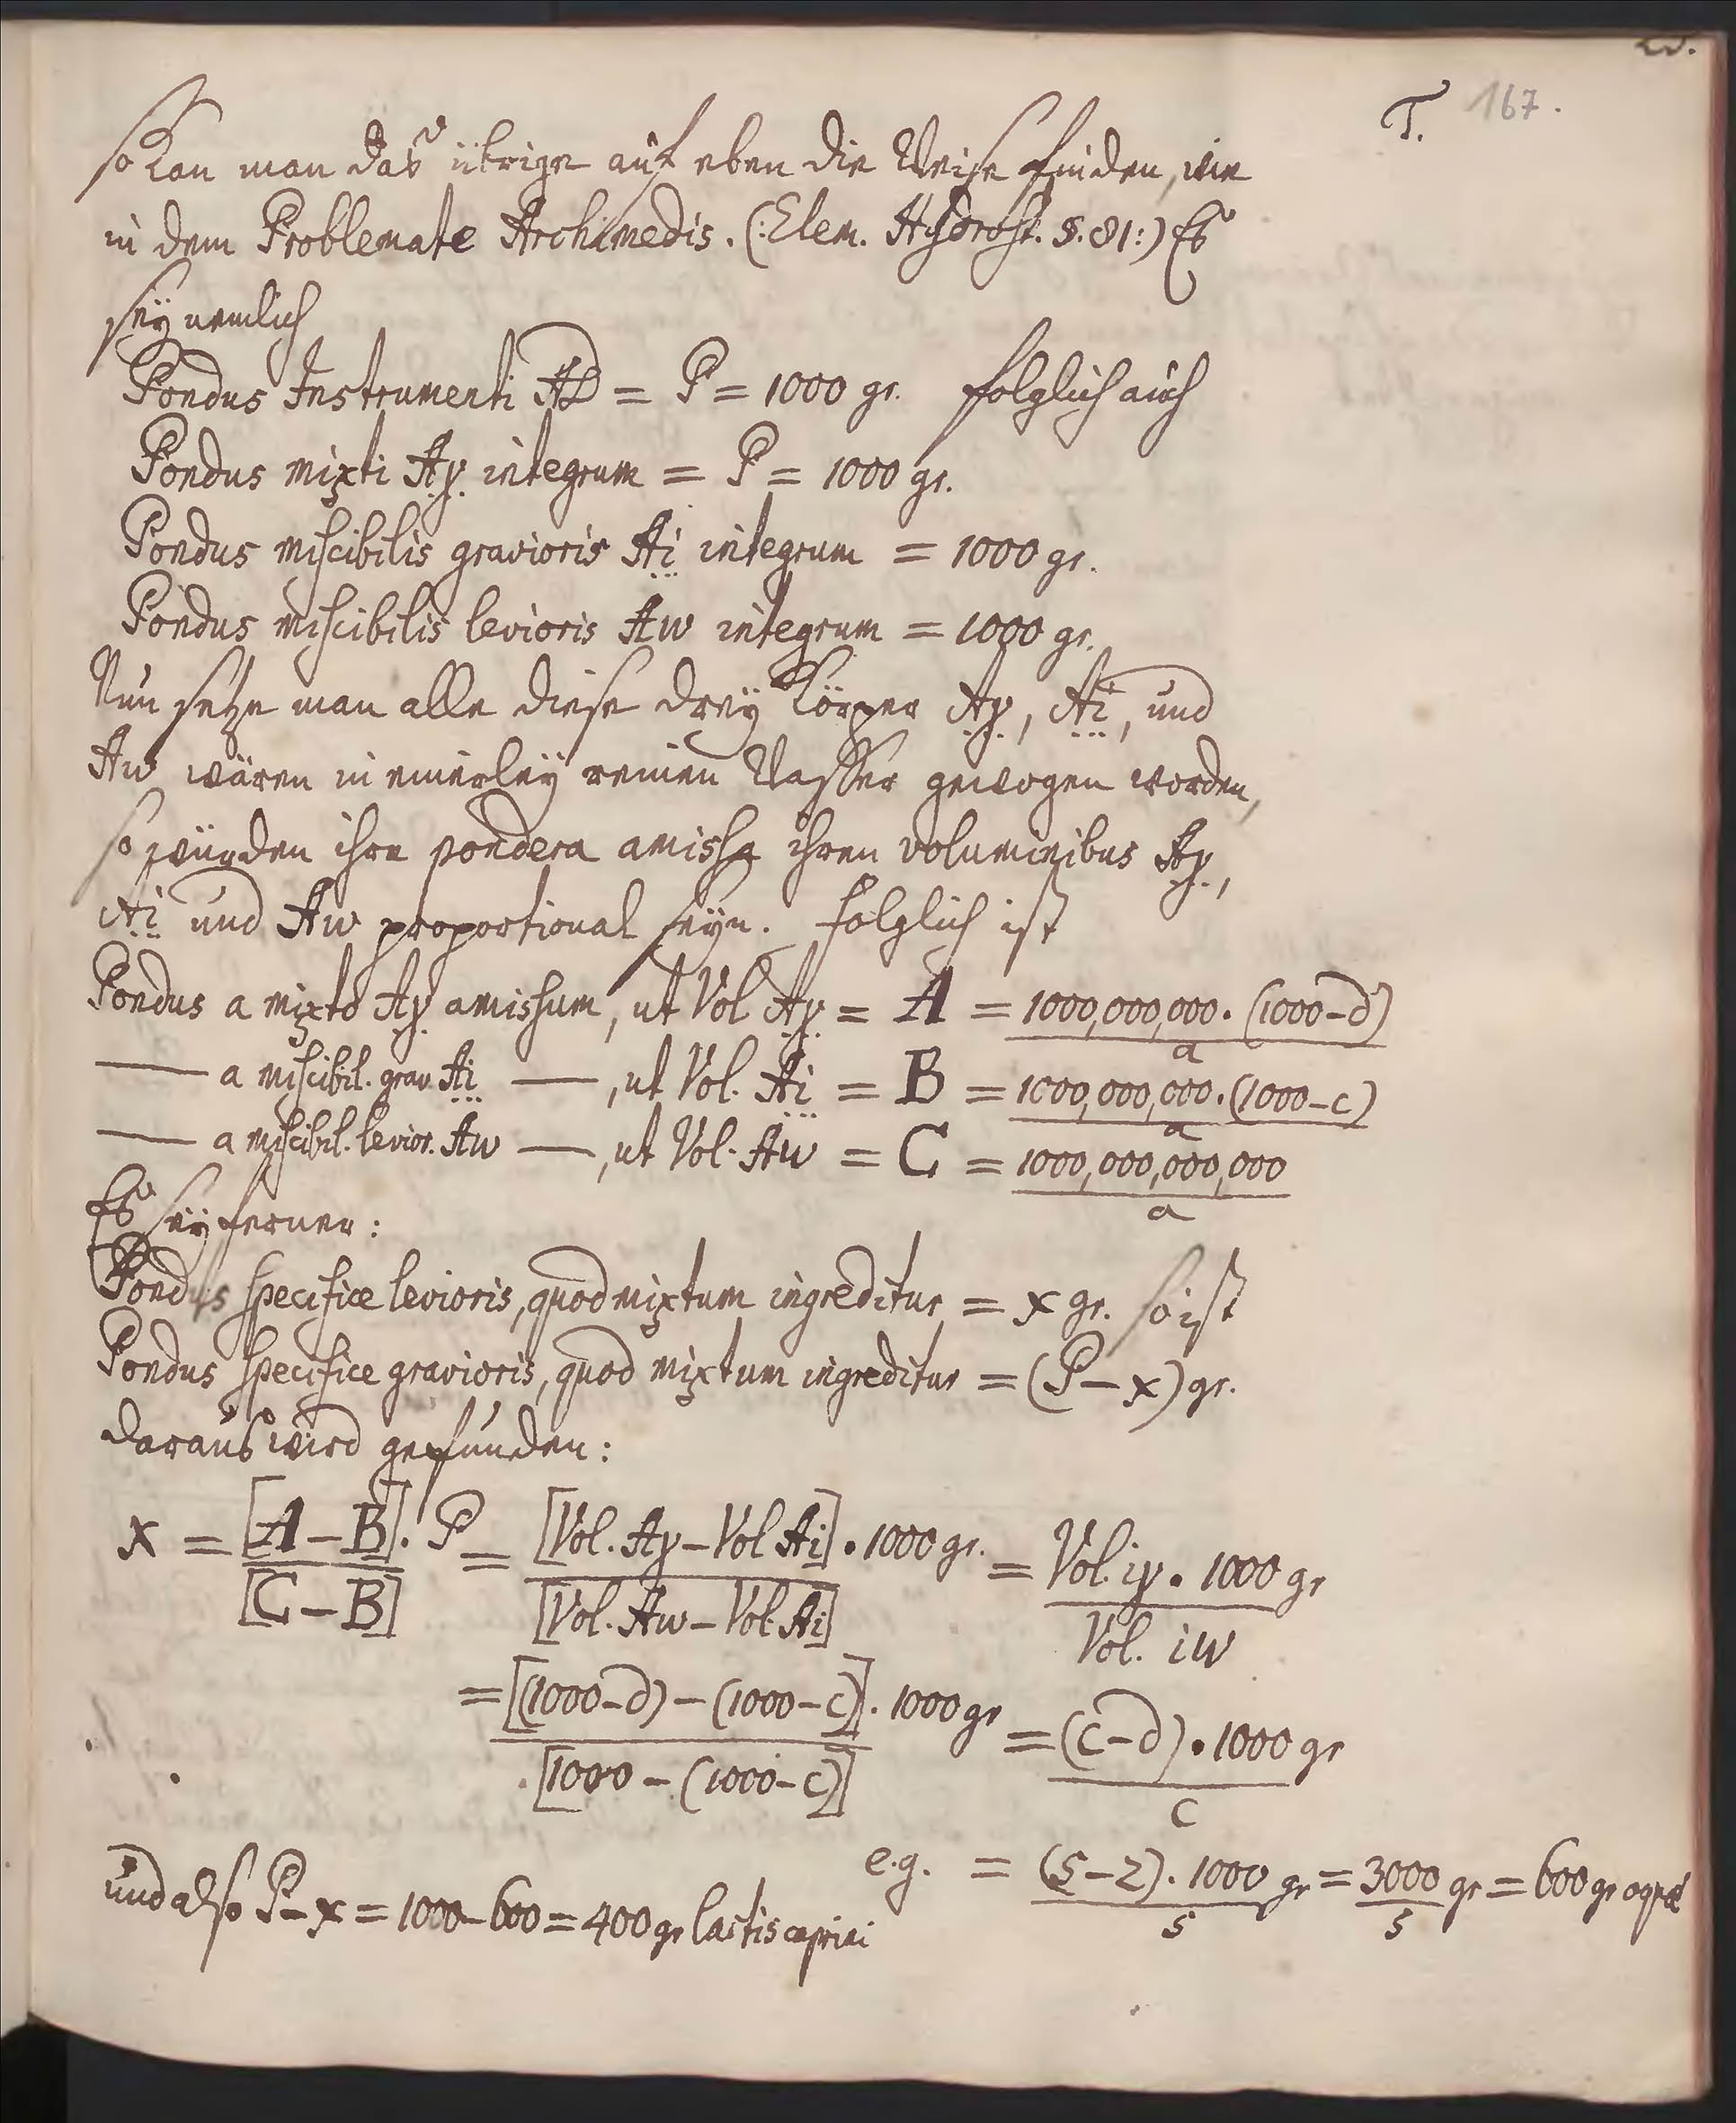 T. 167.
so kan man das übrige auf eben die Weise finden, wie
in dem Problemate Archimedis. (:Elem. Hydrost. §. 81:) Es
seÿ nemlich
Pondus Instrumenti AD = P = 1000 gr. folglich auch
Pondus mixti Ay integrum = P = 1000 gr.
Pondus miscibilis gravioris Ai integrum = 1000 gr.
Pondus miscibilis levioris Aw integrum = 1000 gr.
Nun setze man alle diese dreÿ Körper Ay, Ai, und
Aw wären in einerleÿ reinen Wasser gewogen worden,
so würden ihre pondera amissa ihren voluminibus Ay,
Ai und Aw proportional seÿn. folglich ist
Pondus a mixto Ay amissum, ut Vol Ay = A = 1000,000,000. (1000-d)
a
—— a miscibil. grav. Ai ——, ut Vol. Ai = B = 1000,000,000. (1000-c)
a
—— a miscibil. levior. Aw ——, ut Vol. Aw = C = 1000,000,000,000
a
Es seÿ ferner:
Pondus specifice levioris, quod mixtum ingreditur = x gr. so ist
Pondus specifice gravioris, quod mixtum ingreditur = (P-x) gr.
daraus wird gefunden:
x = [A-B]. P = [Vol. Ay - Vol Ai] . 1000 gr. = Vol. iy . 1000 gr
[C-B] [Vol. Aw - Vol. Ai] Vol. iw
= [(1000-d) - (1000-c)] . 1000 gr = (c-d) . 1000 gr
[1000 - (1000-c)] c
e.g. = (5-2). 1000 gr = 3000 gr = 600 gr aquæ
5 5
und also P-x = 1000-600 = 400 gr lactis caprini